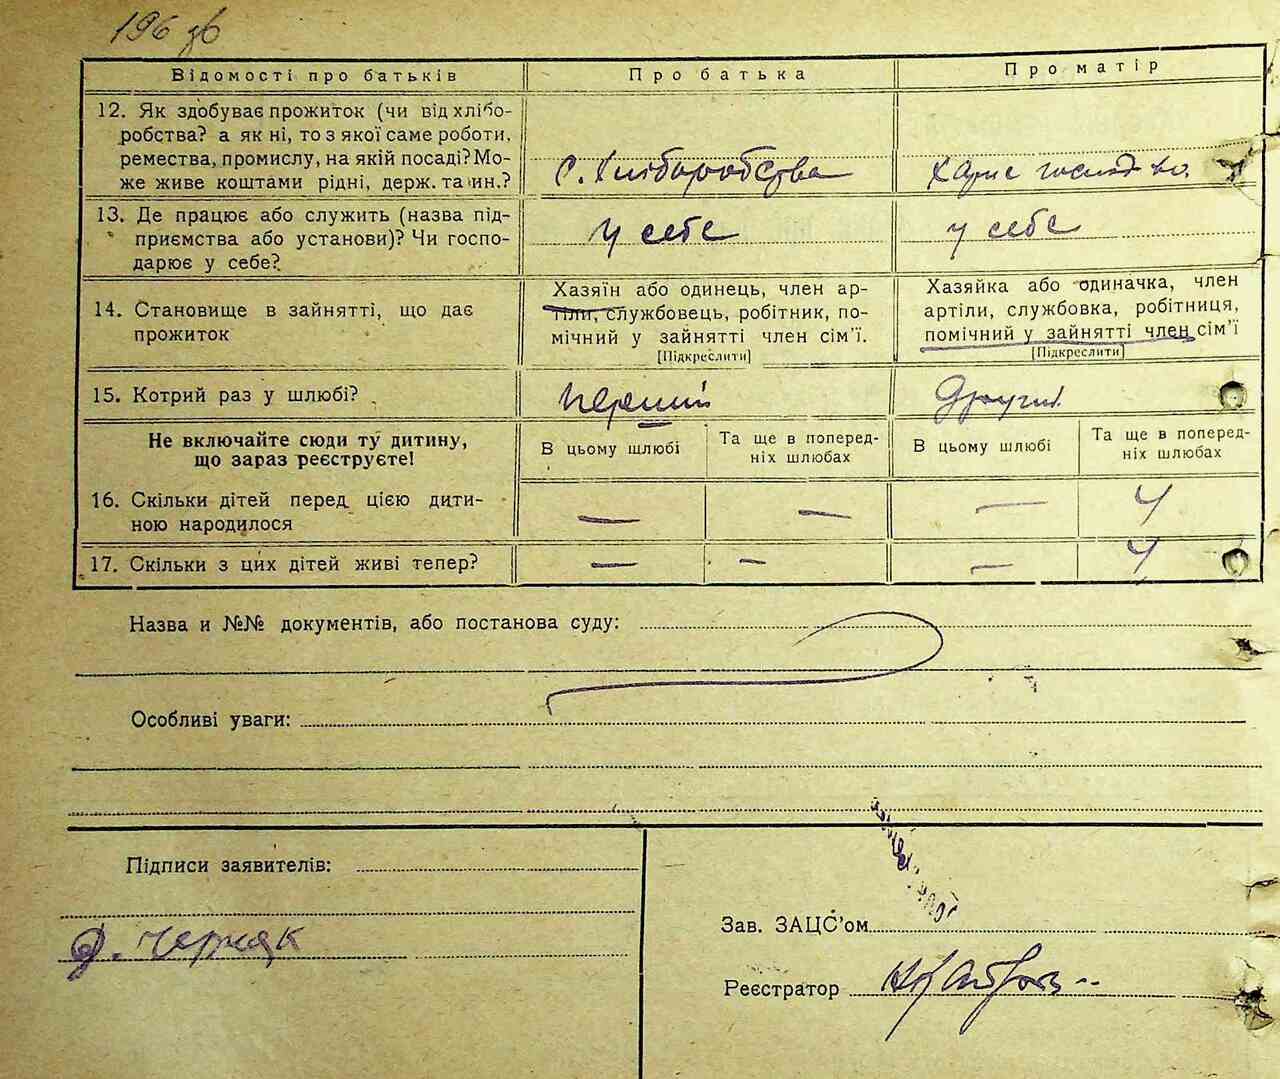 196 зв
Відомості про батьків
Про батька
Про матір
12. Як здобуває прожиток (чи від хлібо-
робства? а як ні, то з якої саме роботи,
ремества, промислу, на якій посаді? Мо-
же живе коштами рідні, держ. та ин.?
С. Хліборобства
господ во.
13. Де працює або служить (назва під-
приємства або установи)? Чи госпо-
дарює у себе?
у себе
у себе
14. Становище в зайнятті, що дає
прожиток
Хазяїн або одинець, член ар-
тіли, службовець, робітник, по-
мічний у зайнятті член сім'ї.
[Підкреслити]
Хазяйка або одиначка, член
артіли, службовка, робітниця,
помічний у зайнятті член сім'ї
[Підкреслити]
15. Котрий раз у шлюбі?
перший
другий
Не включайте сюди ту дитину,
що зараз реєструєте!
В цьому шлюбі
Та ще в поперед-
ніх шлюбах
В цьому шлюбі
Та ще в поперед-
ніх шлюбах
16. Скільки дітей перед цією дити-
ною народилося
— — — 4
17. Скільки з цих дітей живі тепер?
— — — 4
Назва и №№ документів, або постанова суду:
Особливі уваги:
Підписи заявителів:
Черняк
Зав. ЗАЦС'ом
Реєстратор